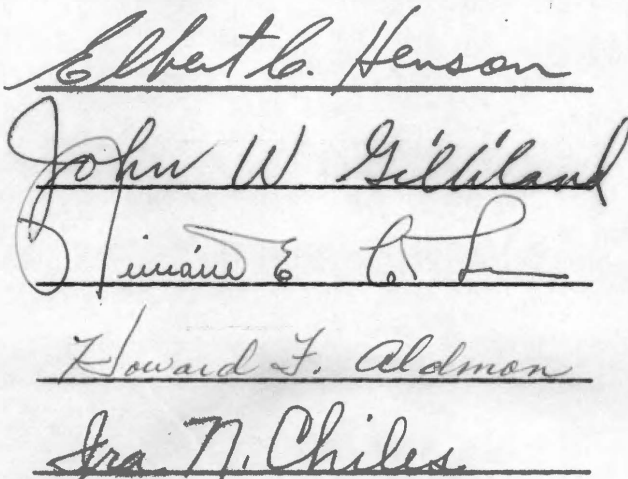 Elbert C. Henson
John W Gilliland
E
Howard F. Aldmon
Ira N. Chiles